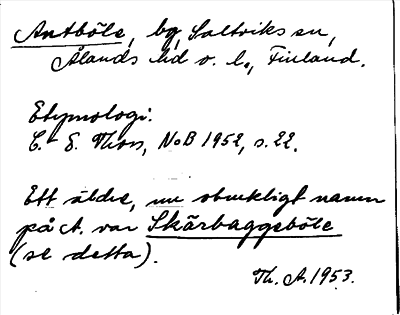 Antböle, by, Saltviks sn,
Ålands hd o. l., Finland.
Etymologi:
C. E. Thors, NoB 1952, s. 22.
Ett äldre, nu obrukligt namn
på A. var Skärbaggeböle
(se detta).
Th. A. 1953.